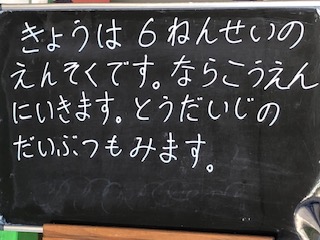 きょうは6ねんせいの
えんそくです。ならこうえん
にいきます。とうだいじの
だいぶつもみます。